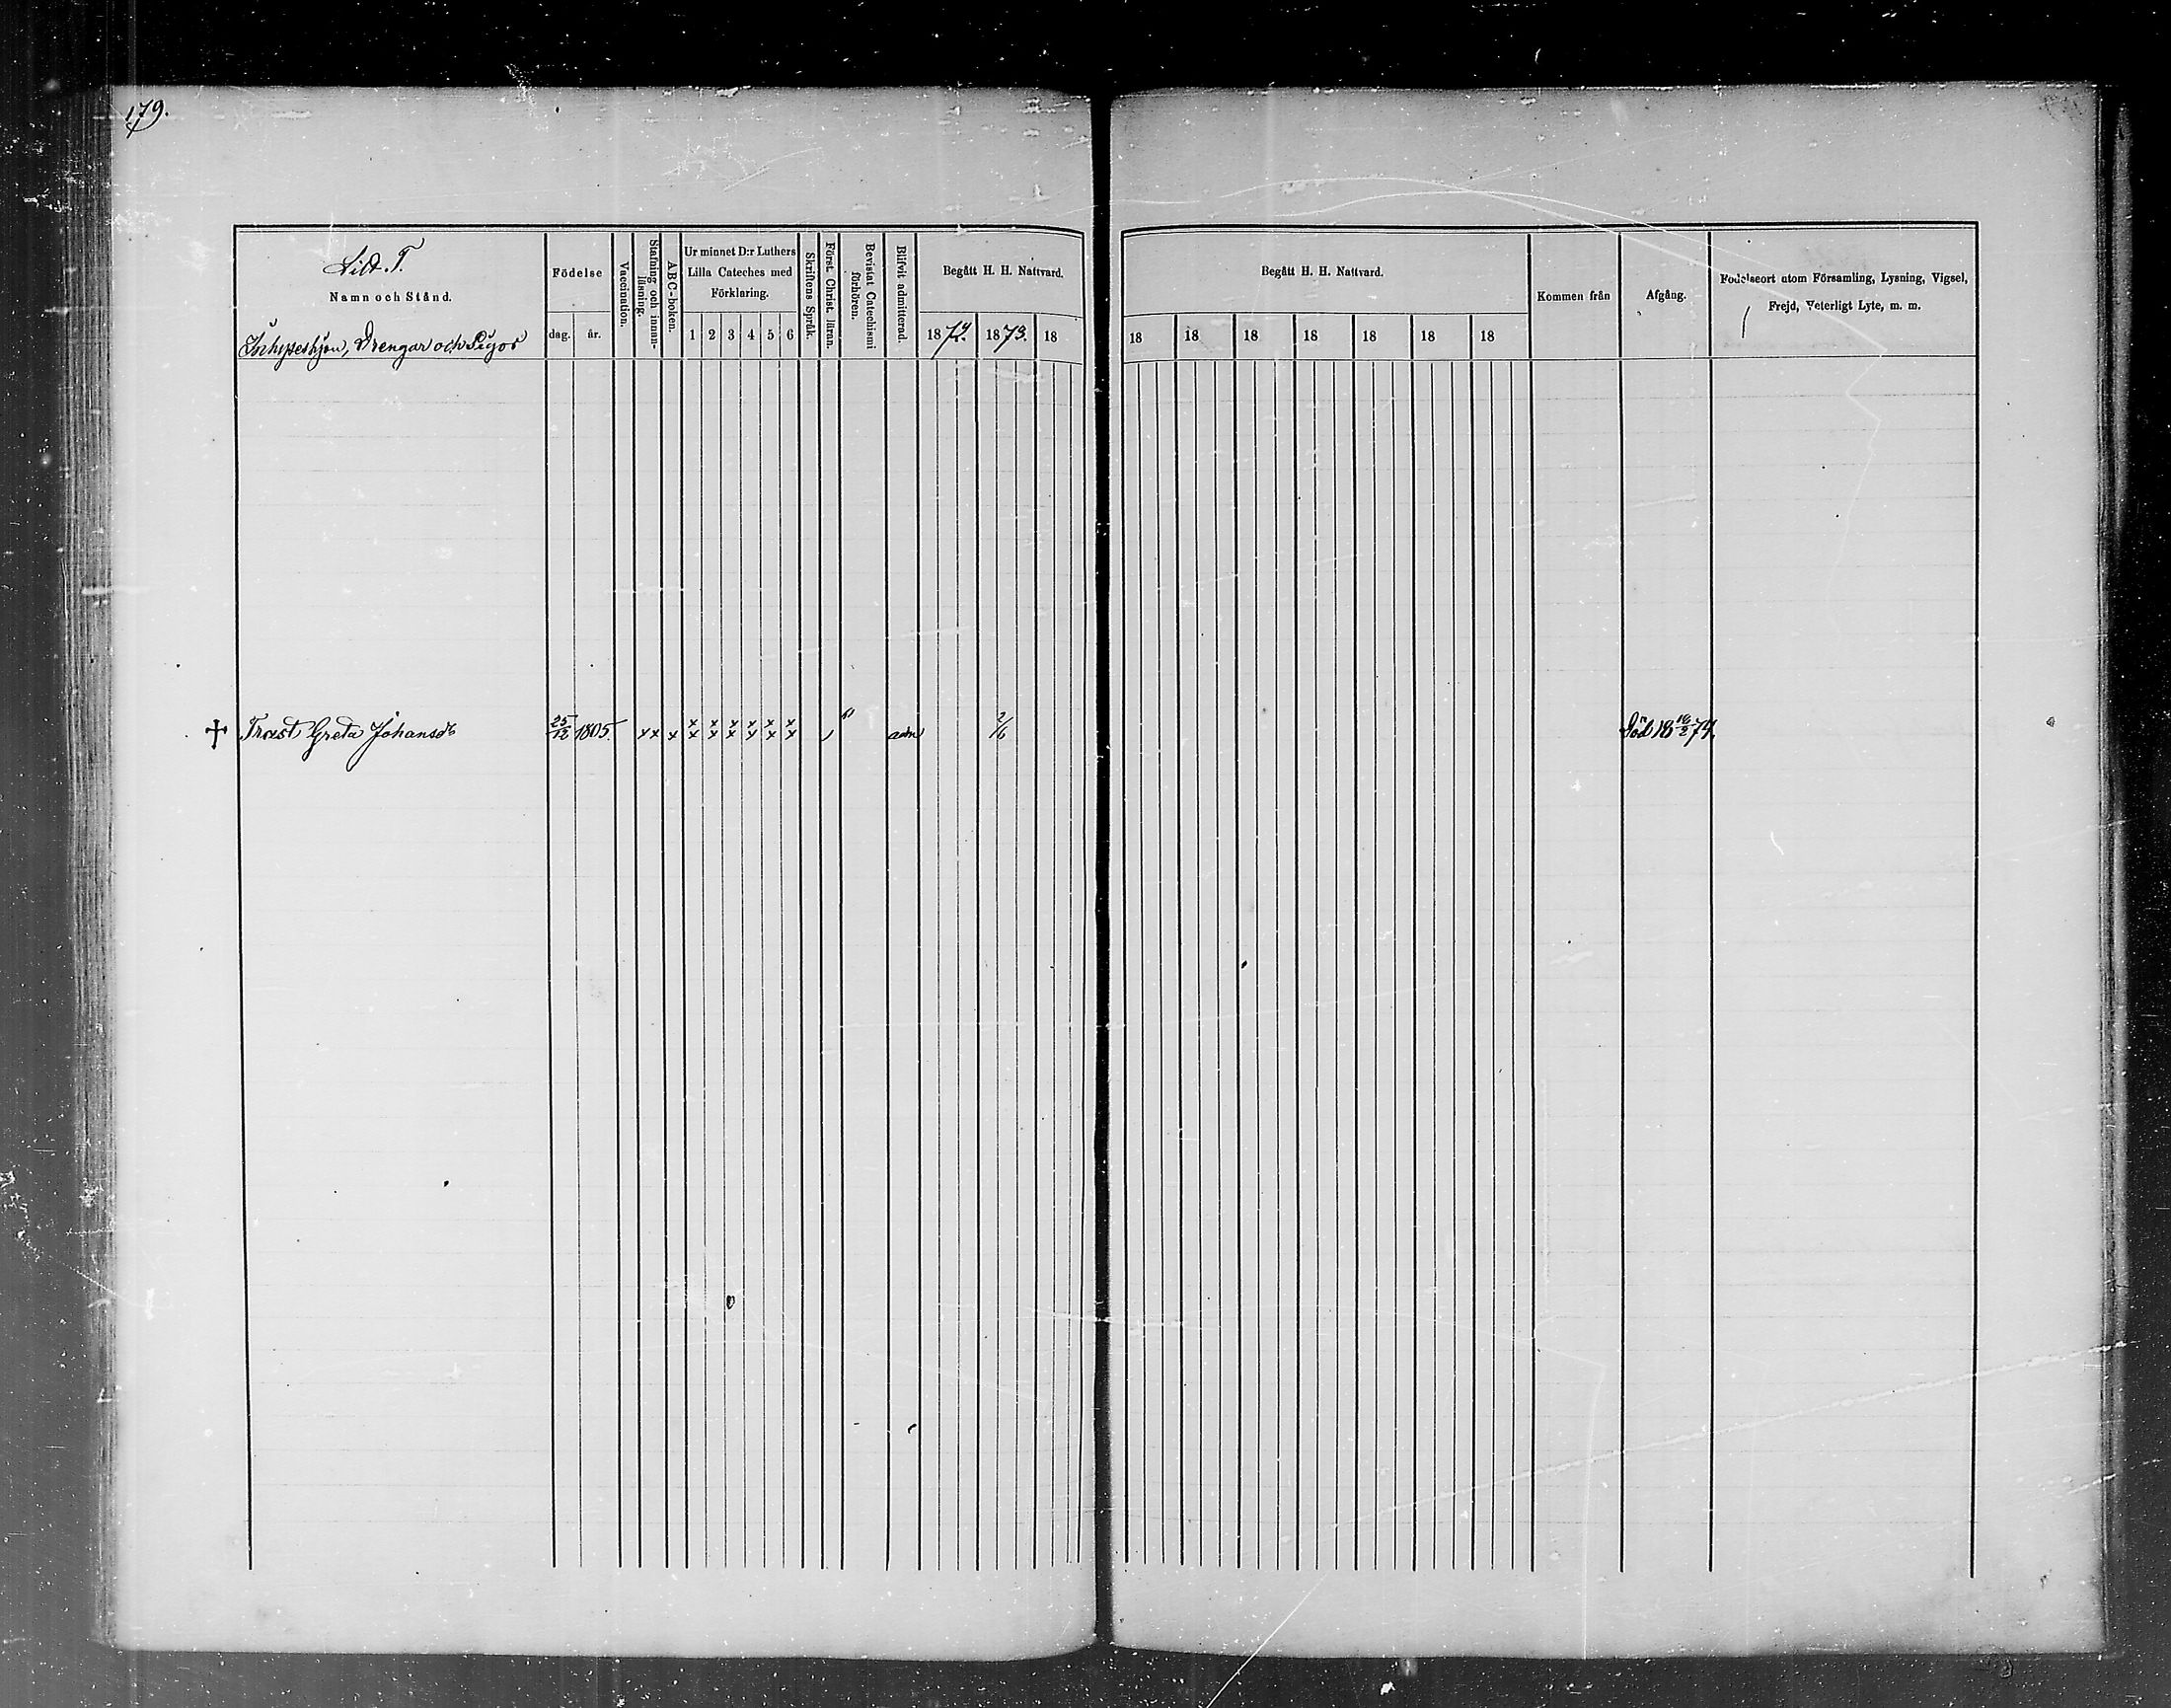 179.
Litt. T.
Namn och Stånd.
Inhyseshjon, Drengar och Pigor
Födelse
dag. år.
Vaccination.
Stafning och innan-
läsning.
A-B-C-boken.
Ur minnet D:r Luthers
Lilla Cateches med
Förklaring.
1 2 3 4 5 6
Skriftens Språk.
Först. Christ. läran.
Bevistat Catechismi
förhören.
Blifvit admitterad.
Begått H. H. Nattvard.
1872. 1873. 18
Begått H. H. Nattvard.
18 18 18 18 18 18 18
Kommen från
Afgång.
Födelseort utom Församling, Lysning, Vigsel,
Frejd, Veterligt Lyte, m. m.
† Trast Greta Johansdr 25/12 1805. x x x x x x x x x x x x x x x adm 2/6 Död 18 16/2 74.